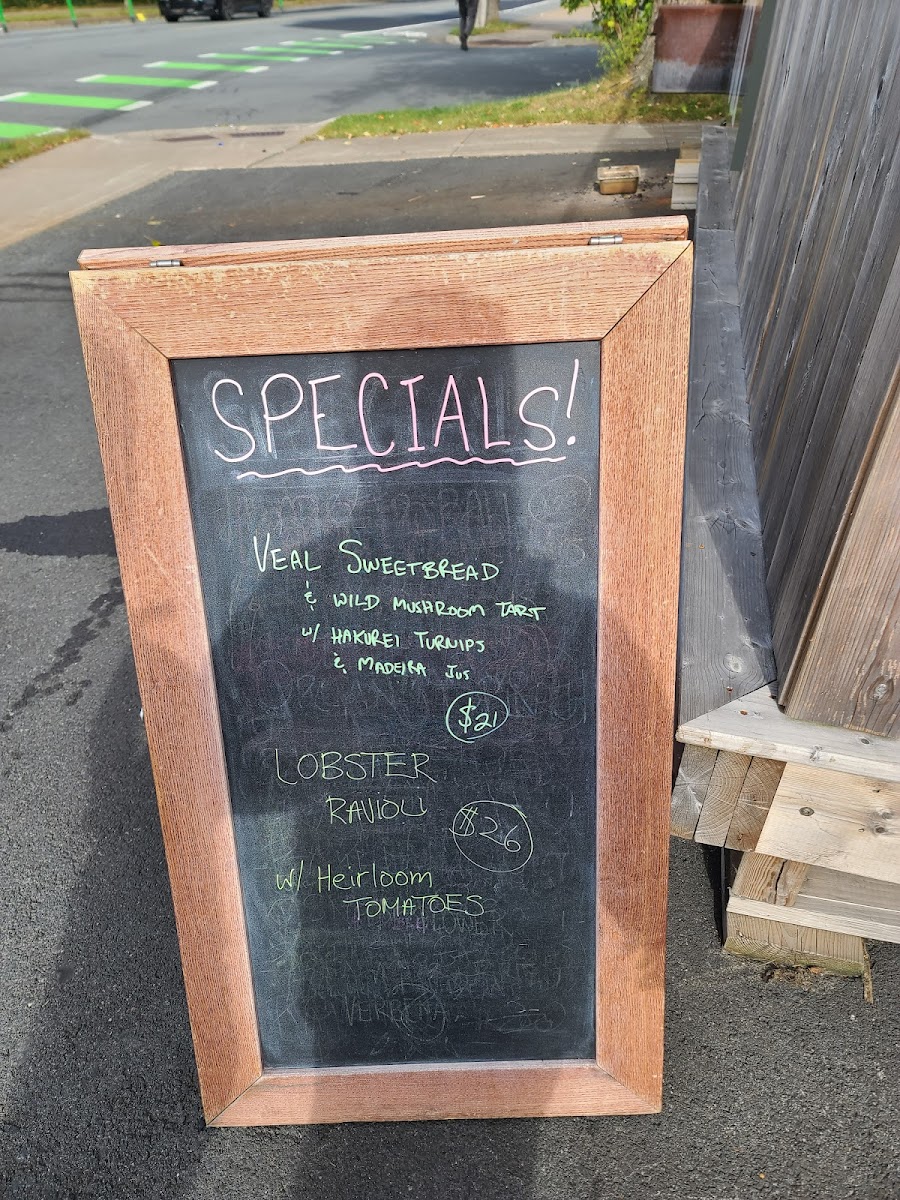 SPECIALS!
VEAL SWEETBREAD
& WILD MUSHROOM TART
w/ HAKUREI TURNIPS
& MADEIRA JUS
$21
LOBSTER
RAVIOLI
$26
w/ Heirloom
TOMATOES
VERBENA